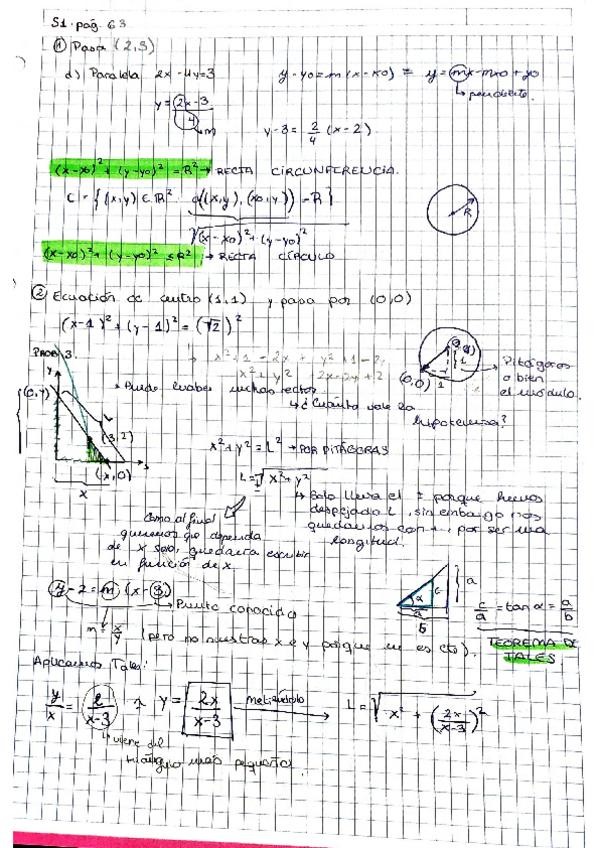 S1. pág. 63
① Pasa (2,3)
d) Paralela 2x - 4y = 3
y - y0 = m (x - x0) = y = mx - mx0 + y0
y = 2x - 3 / 4
↳ m
y - 3 = 2/4 (x - 2)
(x-x0)² + (y-y0)² = R² → RECTA CIRCUNFERENCIA.
C = { (x,y) ∈ R² d((x,y), (x0,y)) = R }
R
√(x-x0)² + (y-y0)²
(x-x0)² + (y-y0)² ≤ R² → RECTA CÍRCULO
② Ecuación de centro (1,1) y pasa por (0,0)
(x-1)² + (y-1)² = (√2)²
x² + 1 - 2x + y² + 1 - 2
x² + y² 2x - 2y + 2
(0,0) 1
Pitágoras
o bien
el módulo.
PROB. 3
y
(0,y)
L
(3,2)
(x,0)
x
→ ¿Cuánto vale la
hipotenusa?
x² + y² = L² → POR PITÁGORAS
L = ± √x² + y²
↳ Solo lleva el ± porque hemos
despejado L, sin embargo nos
quedamos con +, por ser una
longitud.
Como al final
queremos que dependa
de x solo, quedaría escribir
en función de x.
y - 2 = m (x - 3)
→ Punto conocido
m = x/y (pero no nuestras x e y porque m es cte).
a
c
α
b
c/a = tan α = a/b
TEOREMA DE
TALES
Aplicamos Tales:
y/x = 2/x-3 → y = 2x/x-3 metiéndolo → L = √x² + (2x/x-3)²
↳ viene del
triángulo más pequeño